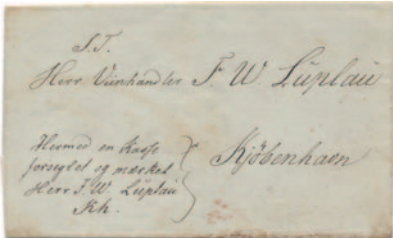 S.T.
Herr Viinhandler F. W. Lüplau
Kjöbenhavn
Hermed en Kasse
forseglet og mærket
Herr F. W. Lüplau
Kh.